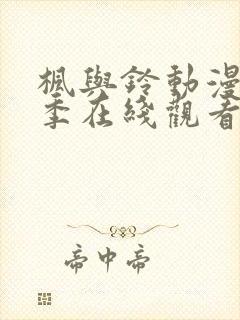 楓與鈴動漫
季在綫觀看
帝中帝